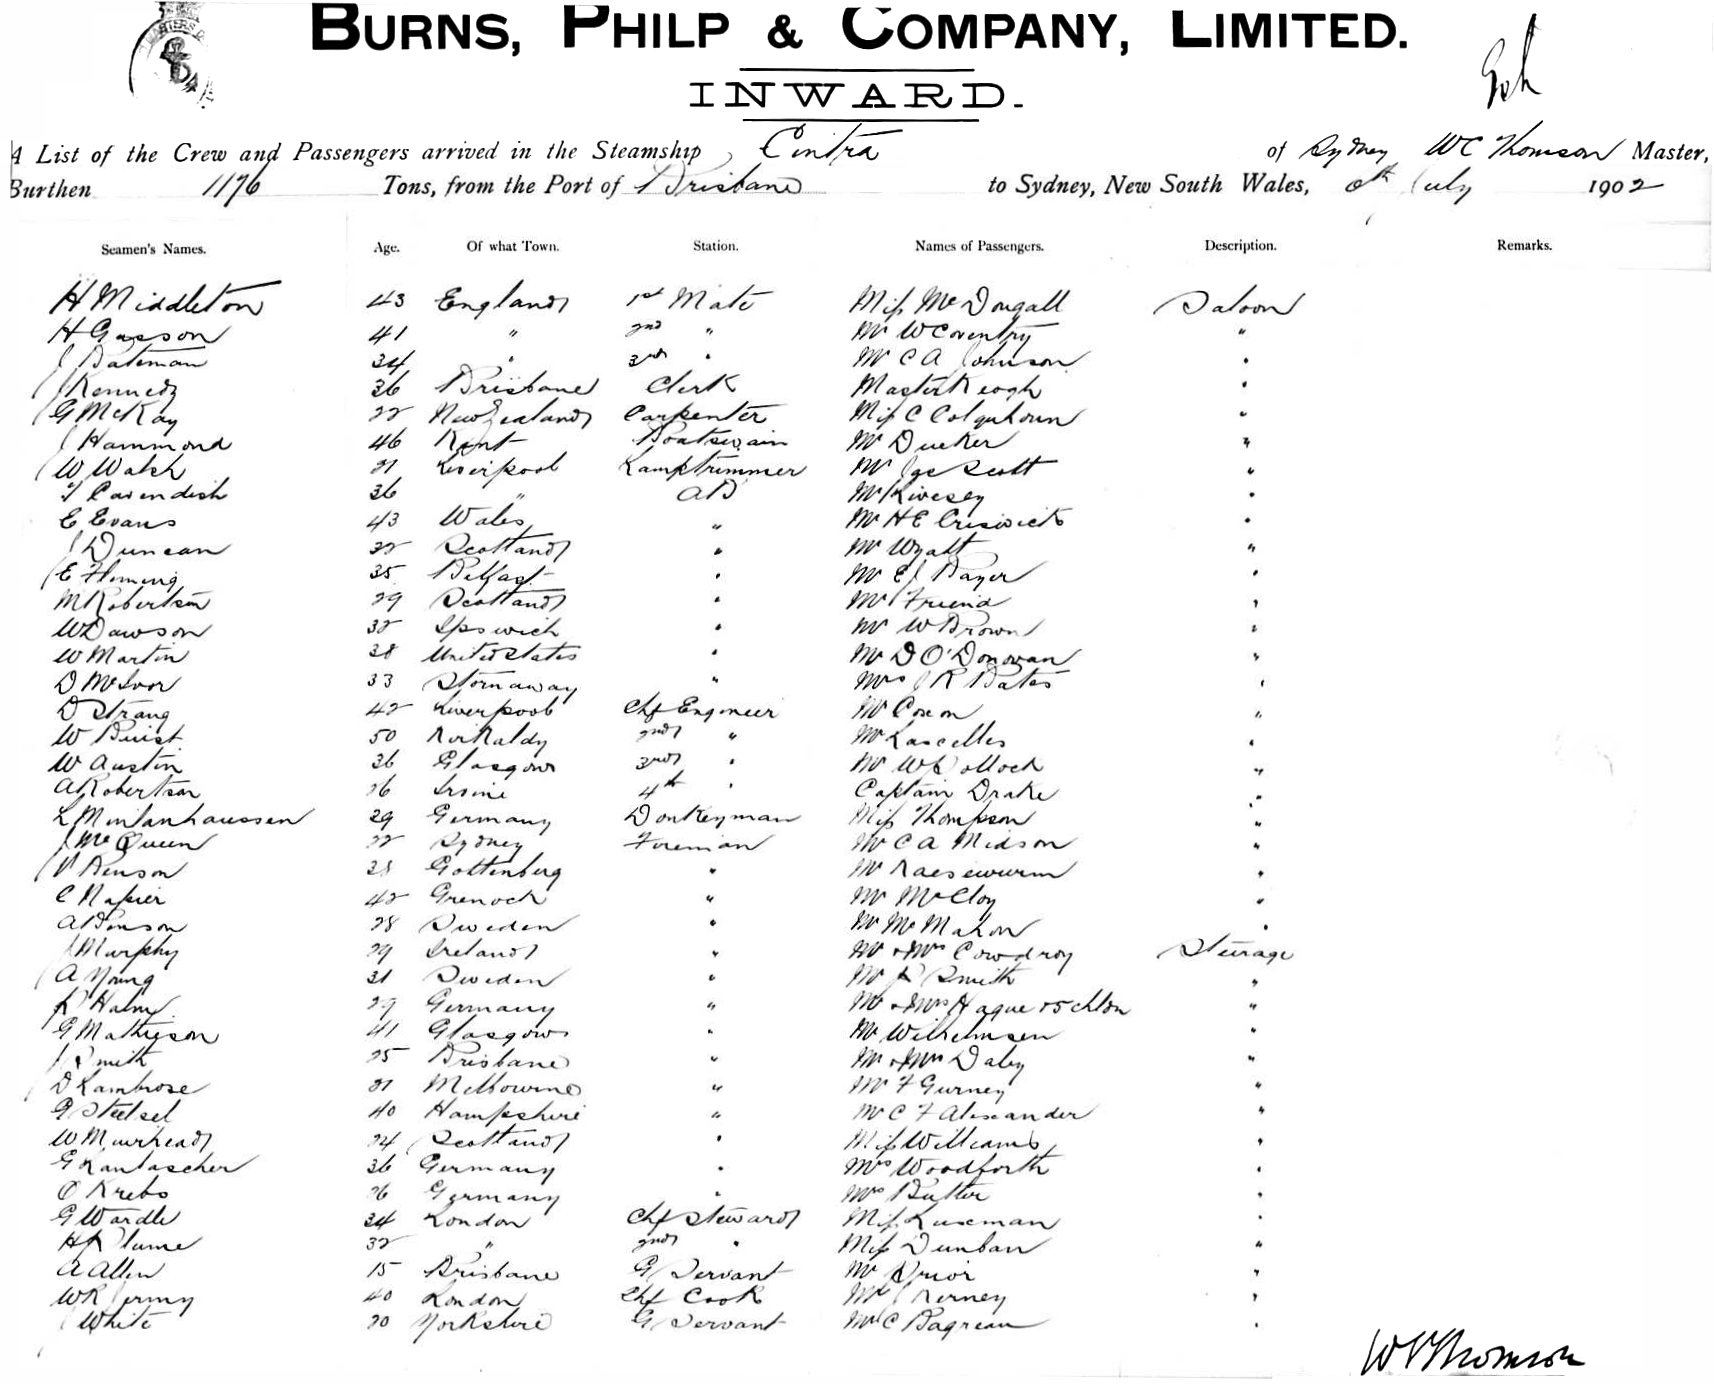 BURNS, PHILP & COMPANY, LIMITED.
INWARD.
A List of the Crew and Passengers arrived in the Steamship Cintra of Sydney W C Thomson Master,
Burthen 1176 Tons, from the Port of Brisbane to Sydney, New South Wales, July 1902
Seamen's Names. Age. Of what Town. Station. Names of Passengers. Description. Remarks.
H Middleton 43 England 1st Mate Miss McDougall Saloon
H Gasson 41 " 2nd " Mr W Coventry "
J Bateman 34 " 3rd " Mr C A Johnson "
J Kennedy 36 Brisbane Clerk Master Keogh "
G McKay 22 New Zealand Carpenter Miss C Colquhoun "
J Hammond 46 Kent Boatswain Mr Ducker "
W Walsh 21 Liverpool Lamptrimmer Mr Jas Scott "
T Cavendish 36 " AB Mr Livesey "
E Evans 43 Wales " Mr H E Criswick "
J Duncan 32 Scotland " Mr Wyatt "
E Fleming 35 Belfast " Mr E J Bayer "
M Robertson 29 Scotland " Mr Friend "
W Dawson 32 Ipswich " Mr W Brown "
W Martin 28 United States " Mr D O'Donovan "
D McIvor 33 Stornaway " Mrs J R Bates "
D Strang 42 Liverpool Chf Engineer Mr Coxon "
W Buist 50 Kirkaldy 2nd " Mr Lascelles "
W Austin 36 Glasgow 3rd " Mr W Pollock "
A Robertson 26 Irvine 4th " Captain Drake "
L Mintanhaussen 29 Germany Donkeyman Miss Thompson "
J McQueen 22 Sydney Fireman Mr C A Midson "
Benson 28 Gottenberg " Mr "
C Napier 42 Grenock " Mr McCloy "
A Benson 28 Sweden " Mr McMahon "
J Murphy 29 Ireland " Mr & Mrs Cowdroy Steerage
A Young 31 Sweden " Mr Smith "
29 Germany " Mr & Mrs Hague & 5 chldn "
G Mathieson 41 Glasgow " Mr Wilhelmsen "
J Smith 25 Brisbane " Mr & Mrs Daley "
D Lambrose 21 Melbourne " Mr F Gurney "
G 40 Hampshire " Mr C F Alexander "
W Muirhead 24 Scotland " Miss Williams "
G Lantascher 36 Germany " Mrs Woodforth "
O Krebs 26 Germany " Mrs Butter "
G Wardle 34 London Chf Steward Miss Luxeman "
H Plume 32 " 2nd " Miss Dunbar "
A Allen 15 Brisbane G Servant Mr Prior "
W R Jermy 40 London Chf Cook Mr J Kerney "
J White 20 Yorkshire G Servant Mr C Bagreau "
W C Thomson